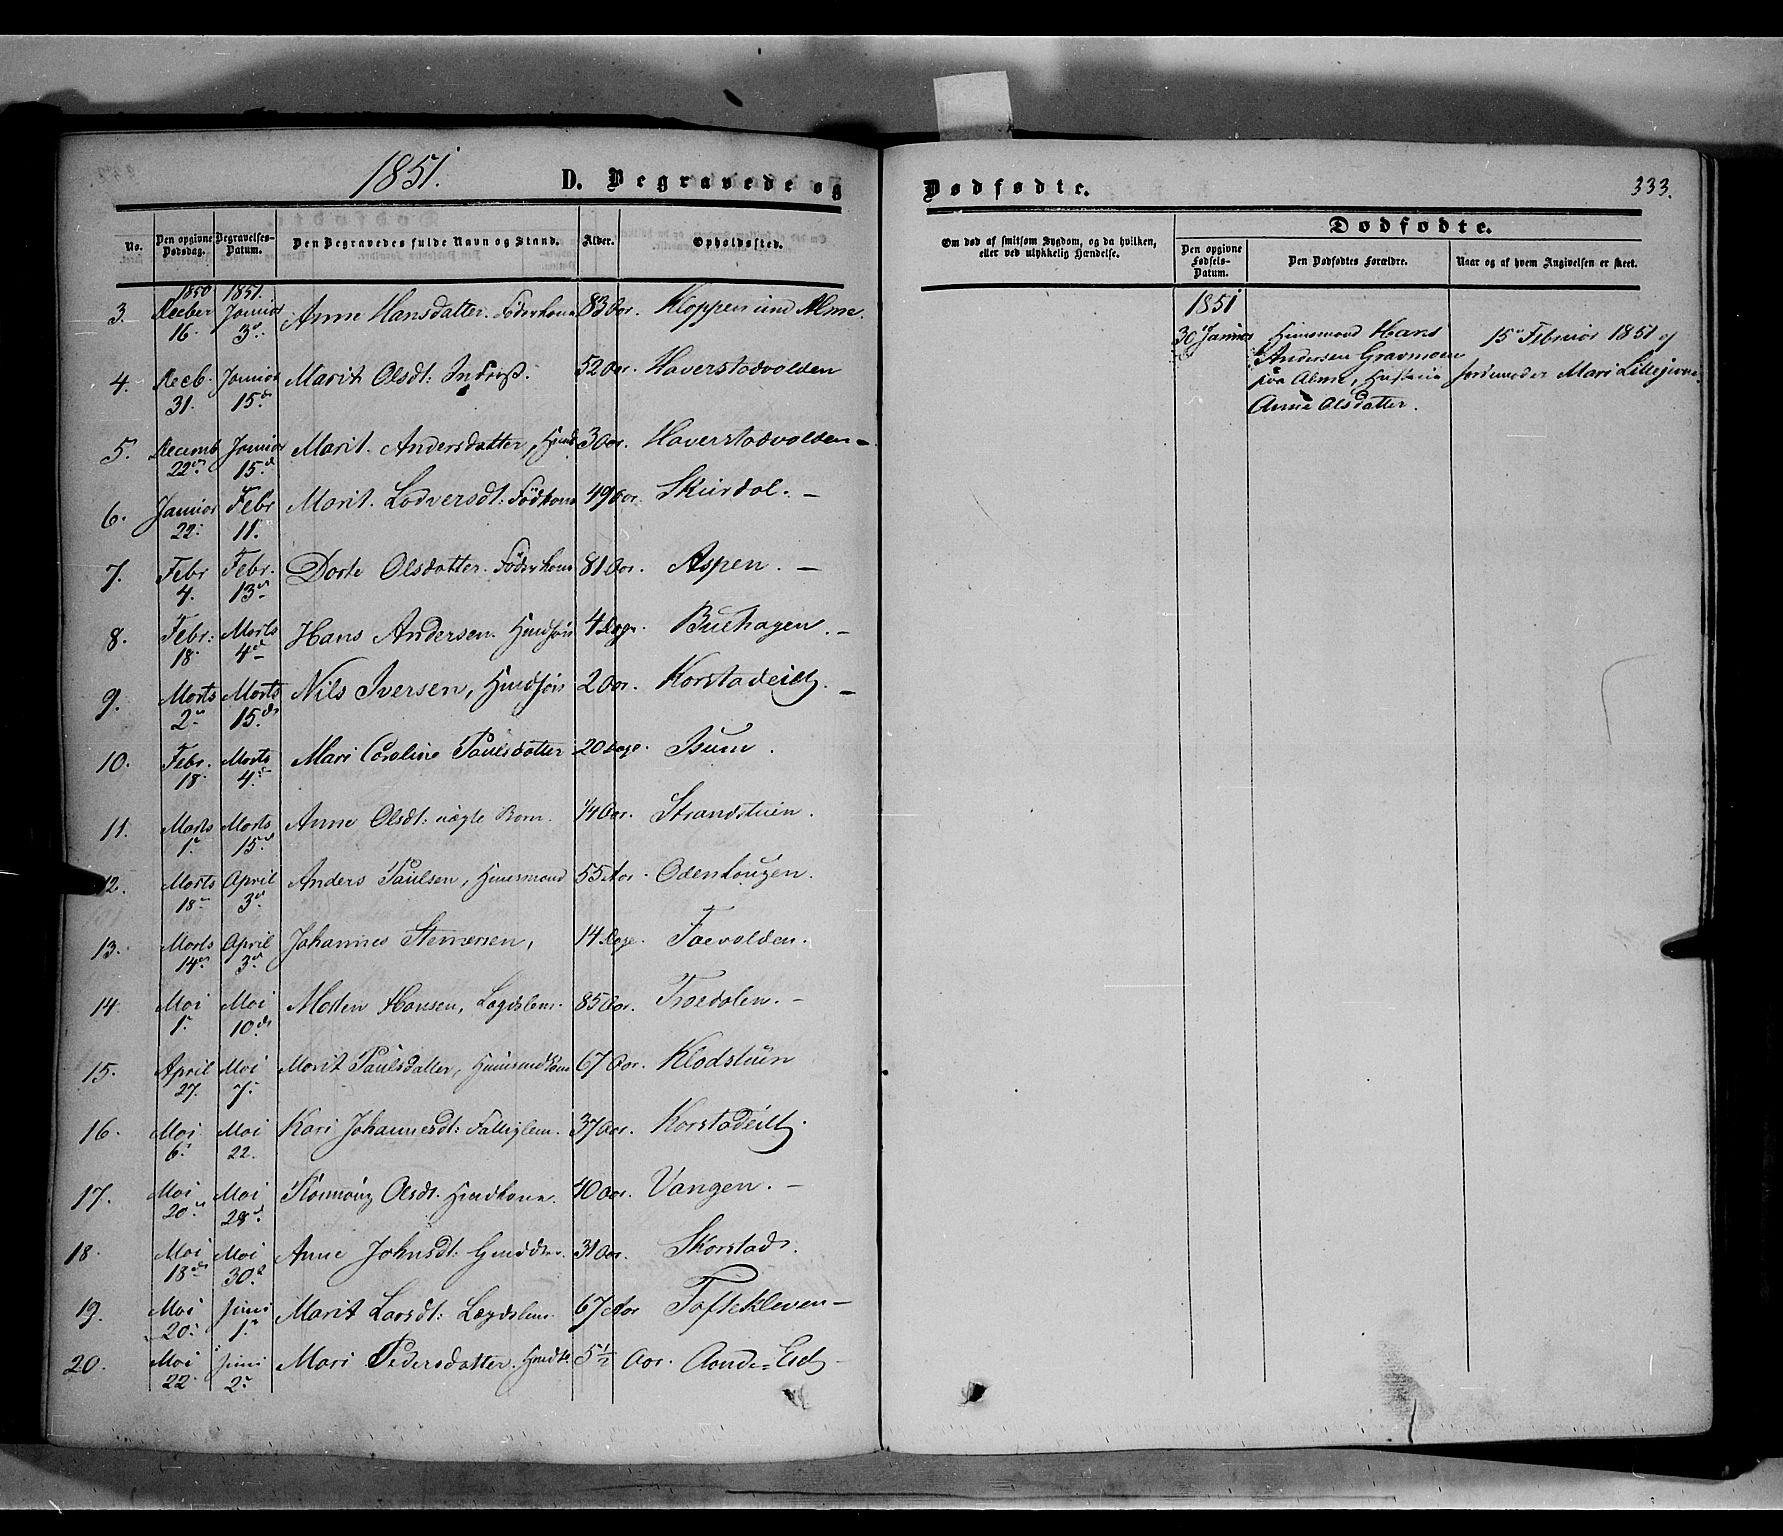 1851.
D. Begravede og
Dødfødte.
333.
No.
Den opgivne Dødsdag.
Begravelses-Datum.
Den Begravedes fulde Navn og Stand.
Alder.
Opholdssted.
Om død af smitsom Sygdom, og da hvilken,
eller ved ulykkelig Hændelse.
Dødfødte.
Den opgivne Fødsels-Datum.
Den Dødfødtes Forældre.
Naar og af hvem Angivelsen er skeet.
1850 1851.
3. Decber 16. Januar 3. Anne Hansdatter. 83 Aar. Kloppen und Alme.
4. Decb. 31. Januar 15. Marit Olsdt: Inderst. 52 Aar. Haverstadvolden
5. Decemb 22 Januar 15. Marit Andersdatter, 3 Aar. Haverstadvolden
6. Januar 22. Febr 11. Marit Lodversdt: Födkone 49 Aar. Skurdal. –
7. Febr 4. Febr. 13 Dorte Olsdatter. Föderkone 81 Aar. Aspen. –
8. Febr: 18. Marts 4 Hans Andersen. 4 Dage. Buehagen. –
9. Marts 2 Marts 15. Nils Iversen, 2 Aar. Korstadeie. –
10. Febr. 18. Marts 4. Mari Caroline Paulsdatter 20 Dage. Isum.
11. Marts 1. Marts 15. Anne Olsdt: uægte Barn. 1/4 Aar. Strandstuen.
12. Marts 18 April 3 Anders Paulsen, Huusmand 55 Aar. Odenhougen.
13. Marts 14 April 3. Johannes 14 Dage. Toevolden.
14. Mai 1. Mai 10 Morten Hansen, Lægdslem. 85 Aar. Troedalen. –
15. April 27. Mai 7. Marit Paulsdatter, 67 Aar. Klodstuen
16. Mai 6 Mai 22. Kari Johannesdt: Fattiglem. 37 Aar. Korstadeie.
17. Mai 20 Mai 28 Rønnoug Olsdt. 40 Aar. Vangen. –
18. Mai 18 Mai 30. Anne Johnsdt: 31 Aar. Skorstad.
19. Mai 20 Juni 1. Marit Larsdt: Lægdslem 67 Aar Toftekleven –
20. Mai 22 Juni 2. Mari Pedersdatter. 5 1/2 Aar.
1851
30 Januar Huusmand Hans
Andersen Gravmoen
Alme, Hustrue
Anne Olsdatter.
15 Februar 1851 af
Jordemoder Mari